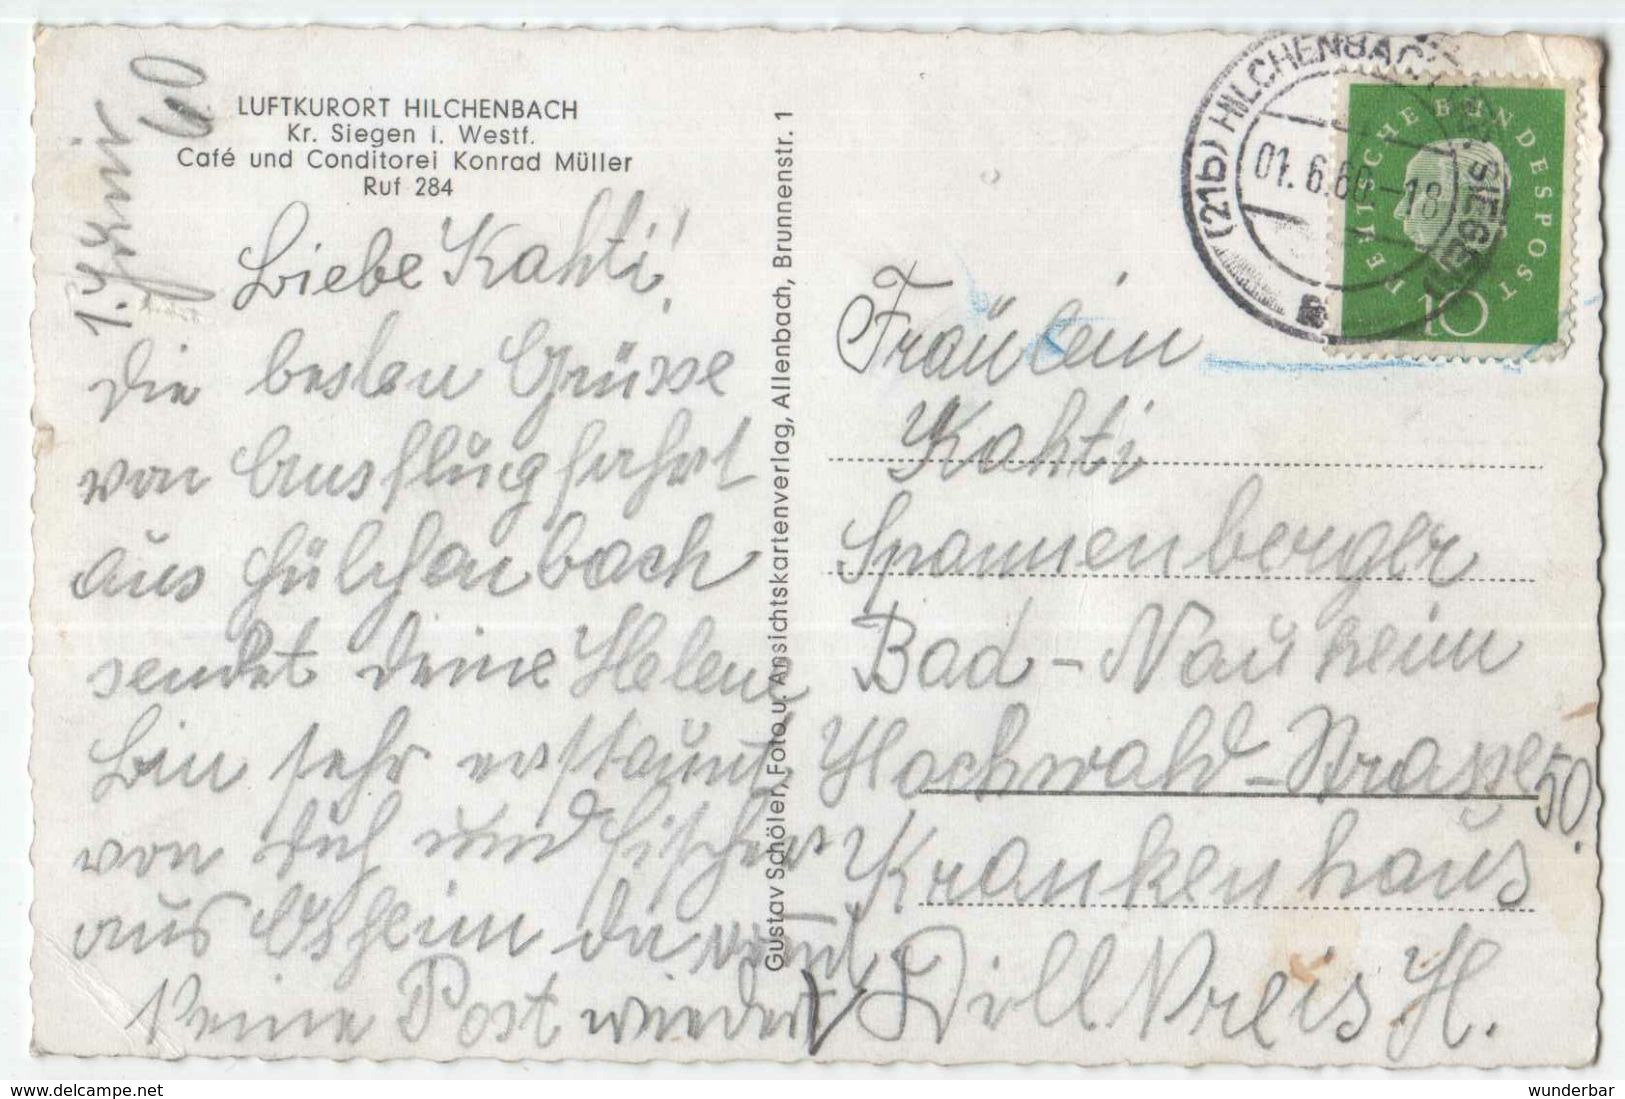 LUFTKURORT HILCHENBACH
Kr. Siegen i. Westf.
Café und Conditorei Konrad Müller
Ruf 284
1. Juni 60
Liebe Kahti!
Die besten Grüsse
von Ausflugfahrt
aus Hülchenbach
sendet deine Helene
bin sehr erstaunt,
von dich und Fischer
aus Osheim da
keine Post wieder
Gustav Schöler, Foto u. Ansichtskartenverlag, Allenbach, Brunnenstr. 1
(21b) HILCHENBACH
01.6.60.-18
DEUTSCHE BUNDESPOST
10
Fräulein
Kahti
Spannenberger
Bad-Nauheim
Hochwald-Strasse 50.
Krankenhaus
Dill Kreis H.
wunderbar
delcampe.net